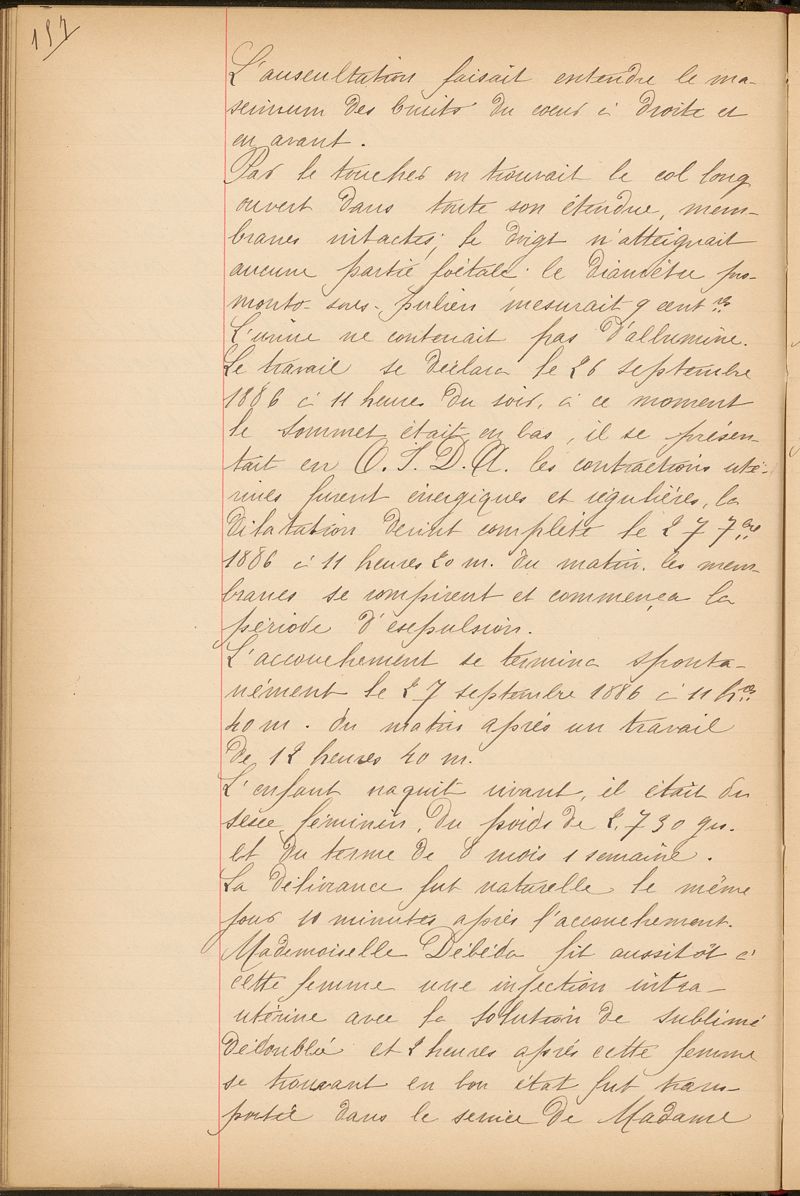 157
L'auscultation faisait entendre le ma-
ximum des bruits du coeur à droite et
en avant.
Par le toucher on trouvait le col long
ouvert dans toute son étendue, mem-
branes intactes; le doigt n'atteignait
aucune partie foetale; le diamètre pro-
monto-sous-pubien mesurait 9 cent res
L'urine ne contenait pas d'albumine.
Le travail se déclara le 26 septembre
1886 à 11 heures du soir, à ce moment
le sommet était en bas, il se présen-
tait en O. I. D. A. les contractions uté-
rines furent énergiques et régulières, la
dilatation devint complète le 27 7bre
1886 à 11 heures 20 m. du matin. les mem
branes se rompirent et commença la
période d'expulsion.
L'accouchement se termina sponta-
nément le 27 septembre 1886 à 11 hres
40 m. du matin après un travail
de 12 heures 40 m.
L'enfant naquit vivant, il était du
sexe féminin, du poids de 2,730 grs.
et du terme de 8 mois 1 semaine.
La délivrance fut naturelle le même
jour 10 minutes après l'accouchement.
Mademoiselle Débéda fit aussitôt à
cette femme une injection intra-
utérine avec la solution de sublimé
dédoublée et 2 heures après cette femme
se trouvant en bon état fut trans-
portée dans le service de Madame